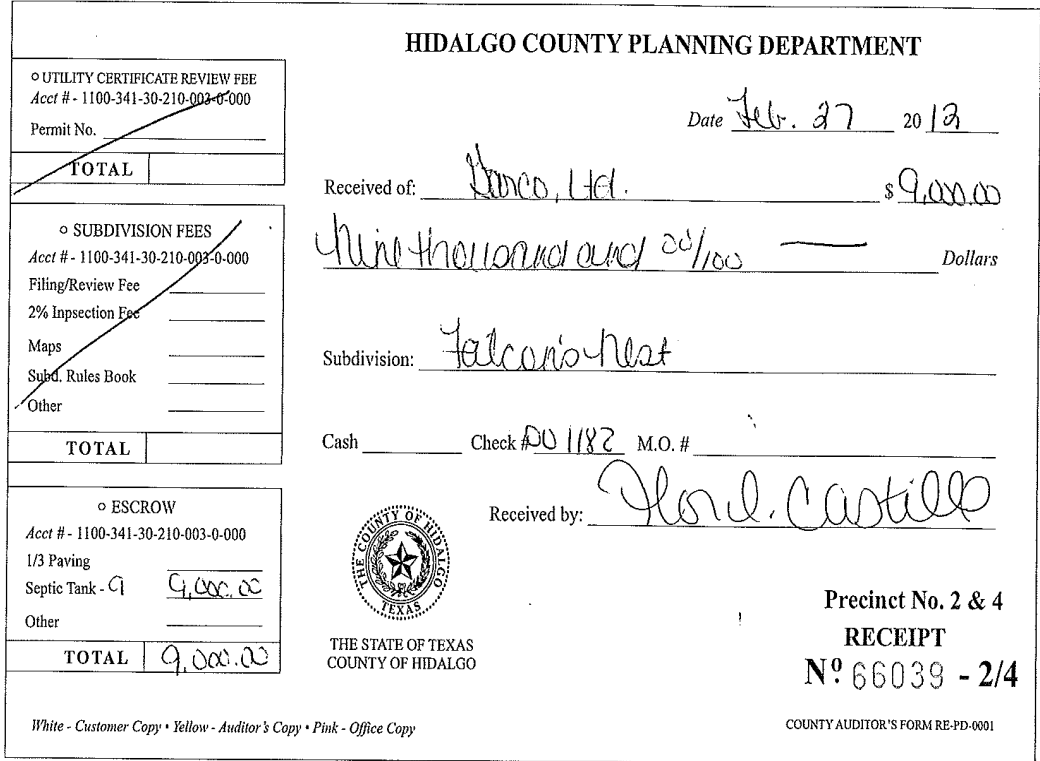 HIDALGO COUNTY PLANNING DEPARTMENT
○ UTILITY CERTIFICATE REVIEW FEE
Acct # - 1100-341-30-210-003-0-000
Permit No.
TOTAL
○ SUBDIVISION FEES
Acct # - 1100-341-30-210-003-0-000
Filing/Review Fee
2% Inpsection Fee
Maps
Subd. Rules Book
Other
TOTAL
○ ESCROW
Acct # - 1100-341-30-210-003-0-000
1/3 Paving
Septic Tank - 9 9,000.00
Other
TOTAL 9,000.00
Date Feb. 27 2012
Received of: Garco, Ltd. $ 9,000.00
Nine thousand and 00/100 Dollars
Subdivision: Falcon's Nest
Cash Check # 001182 M.O. #
Received by: Flor I. Castillo
THE COUNTY OF HIDALGO
TEXAS
THE STATE OF TEXAS
COUNTY OF HIDALGO
Precinct No. 2 & 4
RECEIPT
Nº 66039 - 2/4
White - Customer Copy • Yellow - Auditor's Copy • Pink - Office Copy
COUNTY AUDITOR'S FORM RE-PD-0001